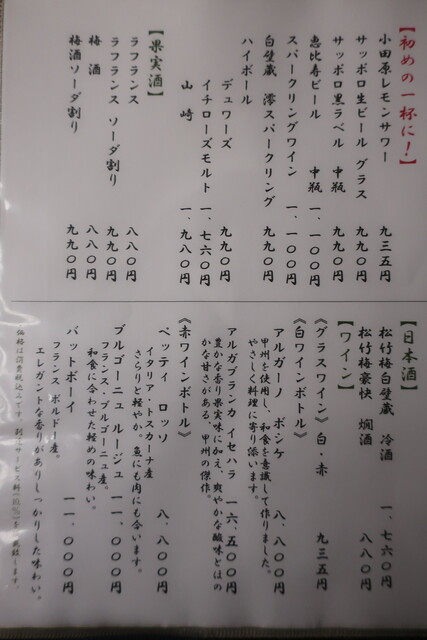 【初めの一杯に！】
小田原レモンサワー 九三五円
サッポロ生ビール グラス 九九〇円
サッポロ黒ラベル 中瓶 九九〇円
恵比寿ビール 中瓶 一、一〇〇円
スパークリングワイン 一、一〇〇円
白壁蔵 澪スパークリング 九九〇円
ハイボール
デュワーズ 九九〇円
イチローズモルト 一、七六〇円
山崎 一、九八〇円
【果実酒】
ラフランス 八八〇円
ラフランス ソーダ割り 九九〇円
梅酒 八八〇円
梅酒ソーダ割り 九九〇円
【日本酒】
松竹梅白壁蔵 冷酒 一、七六〇円
松竹梅豪快 燗酒 八八〇円
【ワイン】
《グラスワイン》白・赤 九三五円
《白ワインボトル》
アルガーノ ボシケ 八、八〇〇円
甲州を使用し、和食を意識して作りました。
やさしく料理に寄り添います。
アルガブランカ イセハラ 一六、五〇〇円
豊かな香り果実味に加え、爽やかな酸味とほの
かな甘さがある、甲州の傑作。
《赤ワインボトル》
ペッティ ロッソ 八、八〇〇円
イタリア・トスカーナ産
さらりと軽やか。魚にも肉にも合います。
ブルゴーニュ ルージュ 一一、〇〇〇円
フランス・ブルゴーニュ産。
和食に合わせた軽めの味わい。
バットボーイ 一一、〇〇〇円
フランス ボルドー産。
エレガントな香りがありしっかりした味わい。
価格は消費税込みです。別にサービス料(10%)を頂戴します。